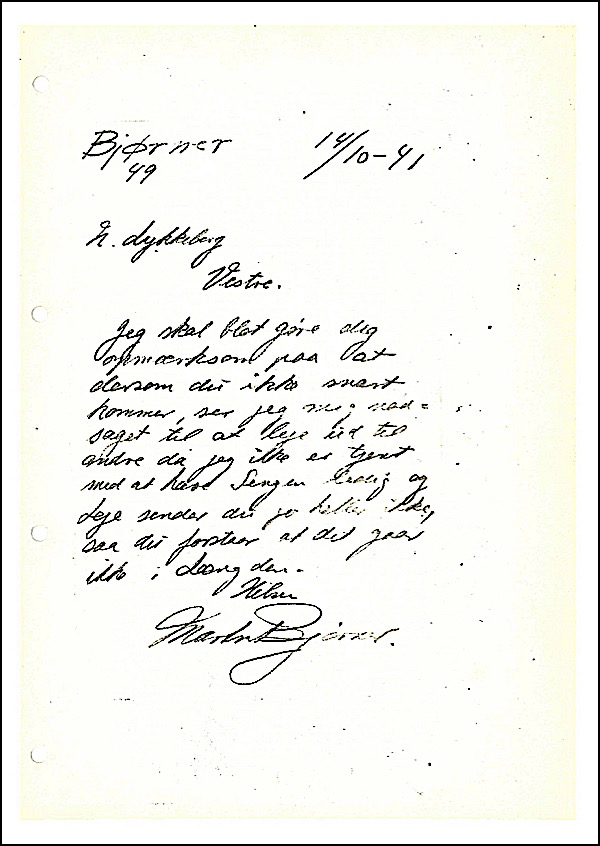 Bjørner 14/10-41
49
N. Lykkeberg
Vestre.
Jeg skal blot gøre dig
opmærksom paa at
dersom du ikke snart
kommer, ser jeg mig nød=
saget til at leje ud til
andre da jeg ikke er tjent
med at have Sengen ledig og
Leje sender du jo heller ikke,
saa du forstaar at det gaar
ikke i Længden.
Hilsen
Bjørner.